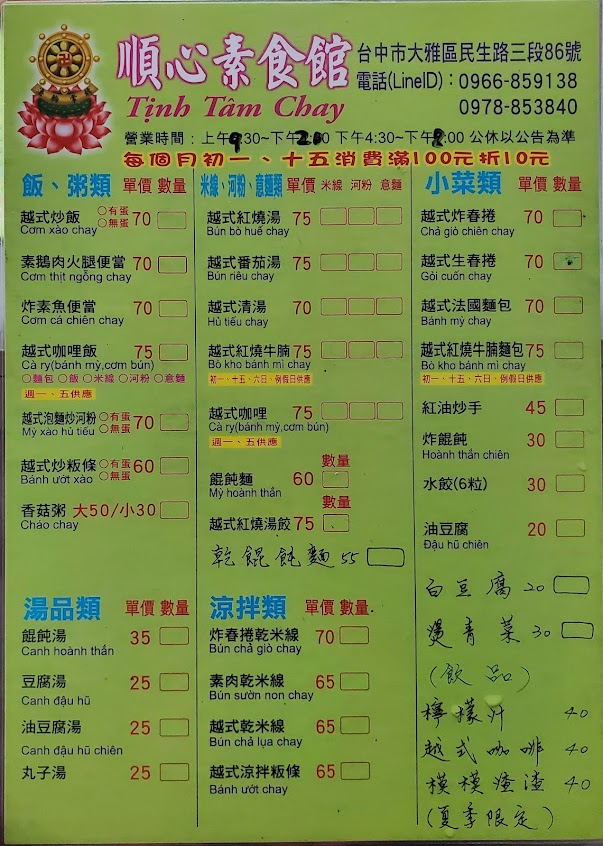 順心素食館
Tịnh Tâm Chay
台中市大雅區民生路三段86號
電話(LineID)：0966-859138
0978-853840
營業時間：上午9:30~下午2:00 下午4:30~下午8:00 公休以公告為準
每個月初一、十五消費滿100元折10元
飯、粥類 單價 數量
越式炒飯 ○有蛋 ○無蛋 70
Cơm xào chay
素鵝肉火腿便當 70
Cơm thịt ngỗng chay
炸素魚便當 70
Cơm cá chiên chay
越式咖哩飯 75
Cà ry(bánh mỳ,cơm bún)
○麵包 ○飯 ○米線 ○河粉 ○意麵
週一、五供應
越式泡麵炒河粉 ○有蛋 ○無蛋 70
Mỳ xào hủ tiếu
越式炒粄條 ○有蛋 ○無蛋 60
Bánh ướt xào
香菇粥 大50/小30
Cháo chay
湯品類 單價 數量
餛飩湯 35
Canh hoành thắn
豆腐湯 25
Canh đậu hũ
油豆腐湯 25
Canh đậu hũ chiên
丸子湯 25
米線、河粉、意麵類 單價 米線 河粉 意麵
越式紅燒湯 75
Bún bò huế chay
越式番茄湯 75
Bún riêu chay
越式清湯 70
Hủ tiếu chay
越式紅燒牛腩 75
Bò kho bánh mì chay
初一、十五、六日、例假日供應
越式咖哩 75
Cà ry(bánh mỳ,cơm bún)
週一、五供應
數量
餛飩麵 60
Mỳ hoành thắn
數量
越式紅燒湯餃 75
乾餛飩麵 55
涼拌類 單價 數量
炸春捲乾米線 70
Bún chả giò chay
素肉乾米線 65
Bún sườn non chay
越式乾米線 65
Bún chả lụa chay
越式涼拌粄條 65
Bánh ướt chay
小菜類 單價 數量
越式炸春捲 70
Chả giò chiên chay
越式生春捲 70
Gỏi cuốn chay
越式法國麵包 70
Bánh mỳ chay
越式紅燒牛腩麵包 75
Bò kho bánh mì chay
初一、十五、六日、例假日供應
紅油炒手 45
炸餛飩 30
Hoành thắn chiên
水餃(6粒) 30
油豆腐 20
Đậu hũ chiên
白豆腐 20
燙青菜 30
(飲品)
檸檬汁 40
越式咖啡 40
摸摸渣渣 40
(夏季限定)